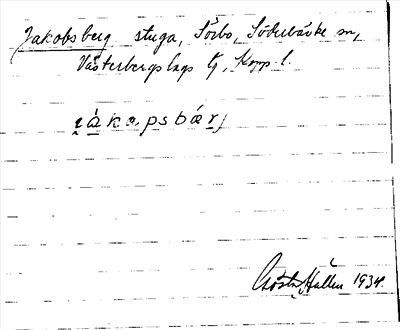 Jakobsberg stuga, Sörbo, Söderbärke sn,
Västerbergslags tg, Kopp l.
i̯ákapsbárj
Gösta Hallén 1934.